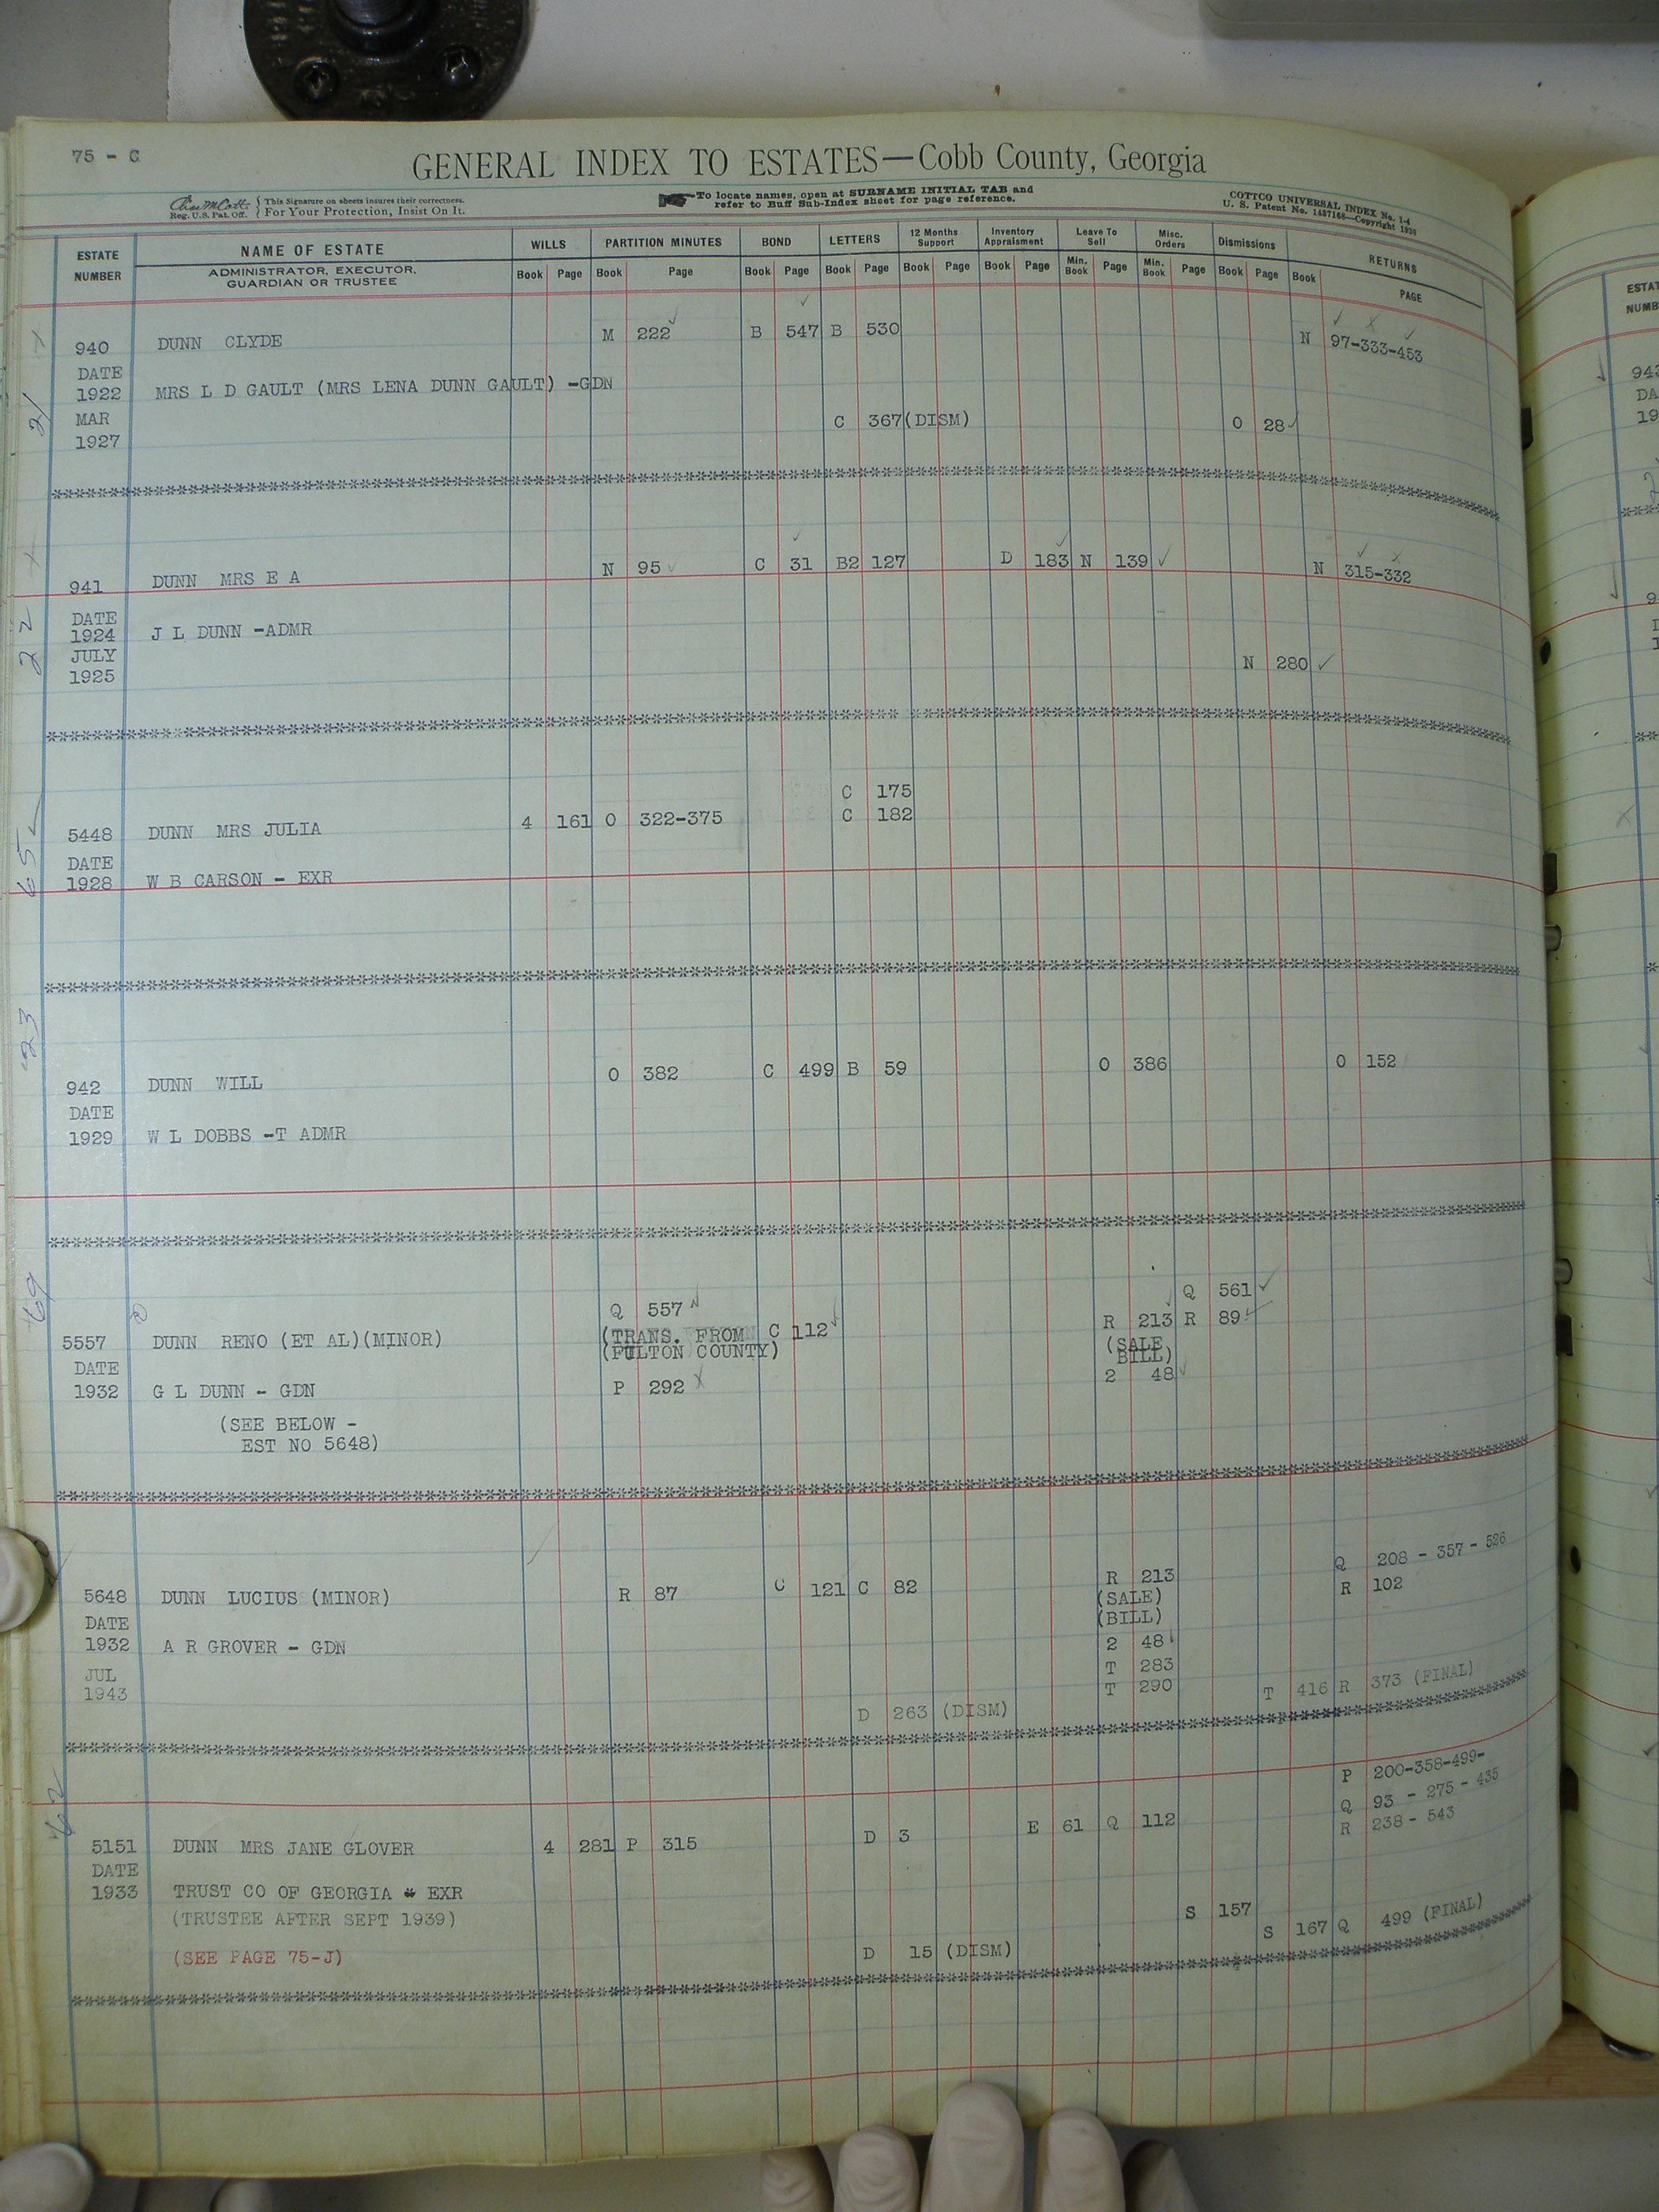 75 - C
GENERAL INDEX TO ESTATES—Cobb County, Georgia
Reg. U.S. Pat. Off. { This Signature on sheets insures their correctness. For Your Protection, Insist On It.
To locate names, open at SURNAME INITIAL TAB and
refer to Buff Sub-Index sheet for page reference.
COTTCO UNIVERSAL INDEX No. 1-4
U. S. Patent No. 1437168—Copyright 1936
ESTATE NUMBER NAME OF ESTATE WILLS PARTITION MINUTES BOND LETTERS 12 Months Support Inventory Appraisment Leave To Sell Misc. Orders Dismissions RETURNS
ADMINISTRATOR, EXECUTOR, GUARDIAN OR TRUSTEE Book Page Book Page Book Page Book Page Book Page Book Page Min. Book Page Min. Book Page Book Page Book PAGE
940 DUNN CLYDE M 222 B 547 B 530 N 97-333-453
DATE
1922 MRS L D GAULT (MRS LENA DUNN GAULT) -GDN
21 MAR C 367(DISM) O 28
1927
941 DUNN MRS E A N 95 C 31 B2 127 D 183 N 139 N 315-332
DATE
22 1924 J L DUNN -ADMR
JULY N 280
1925
C 175
5448 DUNN MRS JULIA 4 161 O 322-375 C 182
DATE
65 1928 W B CARSON - EXR
23
942 DUNN WILL O 382 C 499 B 59 O 386 O 152
DATE
1929 W L DOBBS -T ADMR
69
Q 557 Q 561
5557 DUNN RENO (ET AL)(MINOR) (TRANS. FROM C 112 R 213 R 89
DATE (FULTON COUNTY) (SALE BILL)
1932 G L DUNN - GDN P 292 2 48
(SEE BELOW -
EST NO 5648)
Q 208 - 357 - 526
5648 DUNN LUCIUS (MINOR) R 87 C 121 C 82 R 213 R 102
DATE (SALE)
(BILL)
1932 A R GROVER - GDN 2 48
JUL T 283
1943 T 290 T 416 R 373 (FINAL)
D 263 (DISM)
62
P 200-358-499-
Q 93 - 275 - 435
5151 DUNN MRS JANE GLOVER 4 281 P 315 D 3 E 61 Q 112 R 238 - 543
DATE
1933 TRUST CO OF GEORGIA - EXR
(TRUSTEE AFTER SEPT 1939) S 157 S 167 Q 499 (FINAL)
(SEE PAGE 75-J) D 15 (DISM)